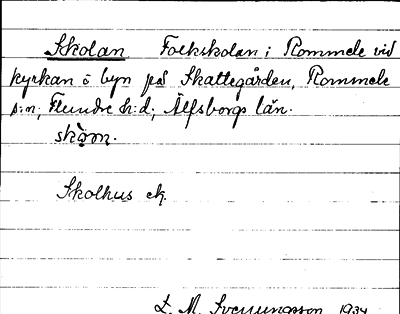 Skolan. Folkskolan i Rommele vid
kyrkan ō byn på Skattegården, Rommele
s:n, Flundre h:d, Älfsborgs län.
skɷ̀ᴏn.
Skolhus ek.
L. M. Sverungsson 1934